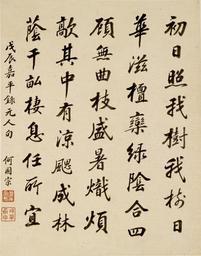 初日照我樹我樹日
華滋檀欒綠陰合四
顧無曲枝盛暑熾煩
歊其中有涼颸成林
蔭千畝棲息任所宜
戊辰嘉平錄元人句 何國宗